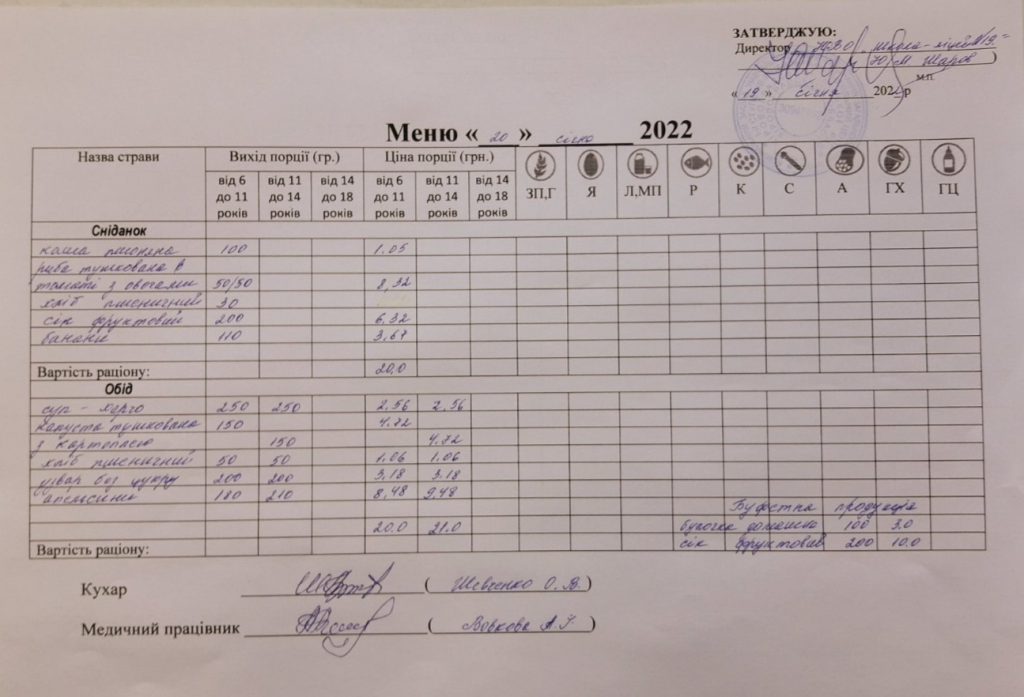 ЗАТВЕРДЖУЮ:
Директор ЗВО "Школа-ліцей №19"
Ю.М. Шаров )
м.п.
« 19 » січня 202 р
Меню « 20 » січня 2022
Назва страви Вихід порції (гр.) Ціна порції (грн.)
від 6 до 11 років від 11 до 14 років від 14 до 18 років від 6 до 11 років від 11 до 14 років від 14 до 18 років ЗП,Г Я Л,МП Р К С А ГХ ГЦ
Сніданок
каша пшоняна 100 1.05
риба тушкована в
томаті з овочами 50/50 8,32
хліб пшеничний 30
сік фруктовий 200 6,32
банани 110 3,67
Вартість раціону: 20.0
Обід
суп - харчо 250 250 2.56 2.56
капуста тушкована 150 4.72
з картоплею 150 4.72
хліб пшеничний 50 50 1.06 1.06
узвар без цукру 200 200 3.18 3.18
апельсини 180 210 8,48 9.48
Буфетна продукція
20.0 21.0 булочка домашня 100 3.0
Вартість раціону: сік фруктовий 200 10.0
Кухар ( Шевченко О.В. )
Медичний працівник ( Вовкова А.Г )